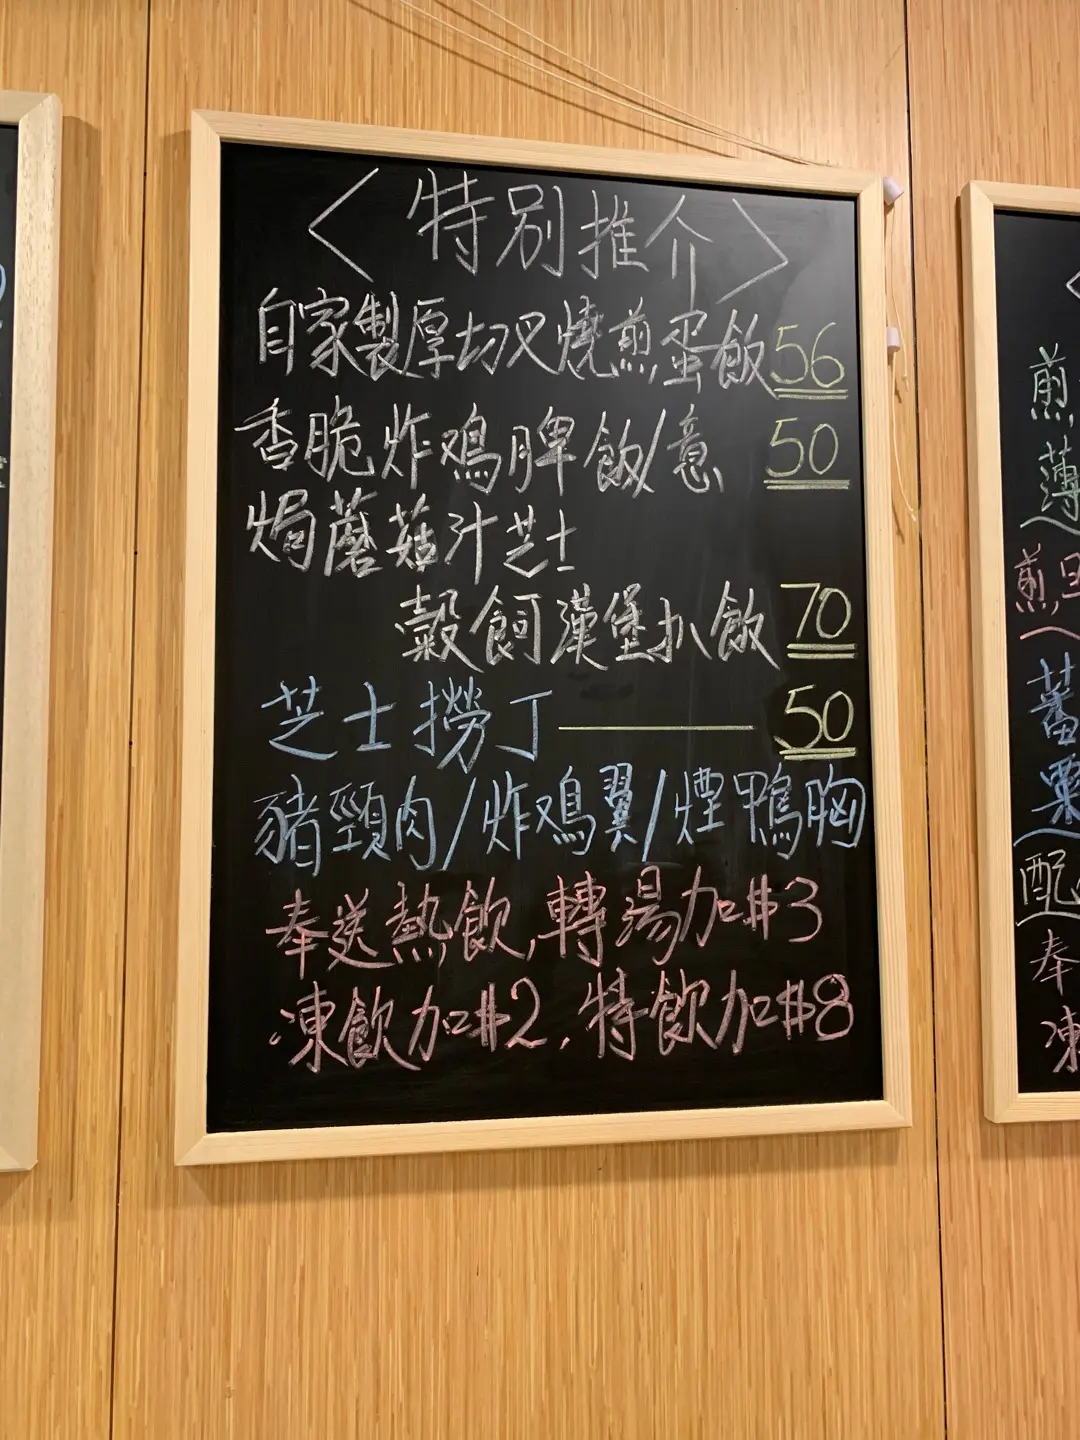 <特別推介>
自家製厚切叉燒煎蛋飯56
香脆炸鳮脾飯/意 50
焗蘑菇汁芝士
穀飼漢堡扒飯 70
芝士撈丁——50
豬頸肉/炸鳮翼/煙鴨胸
奉送熱飲,轉湯加$3
凍飲加$2,特飲加$8
煎
薄
煎
蕃
粟
配
奉
凍